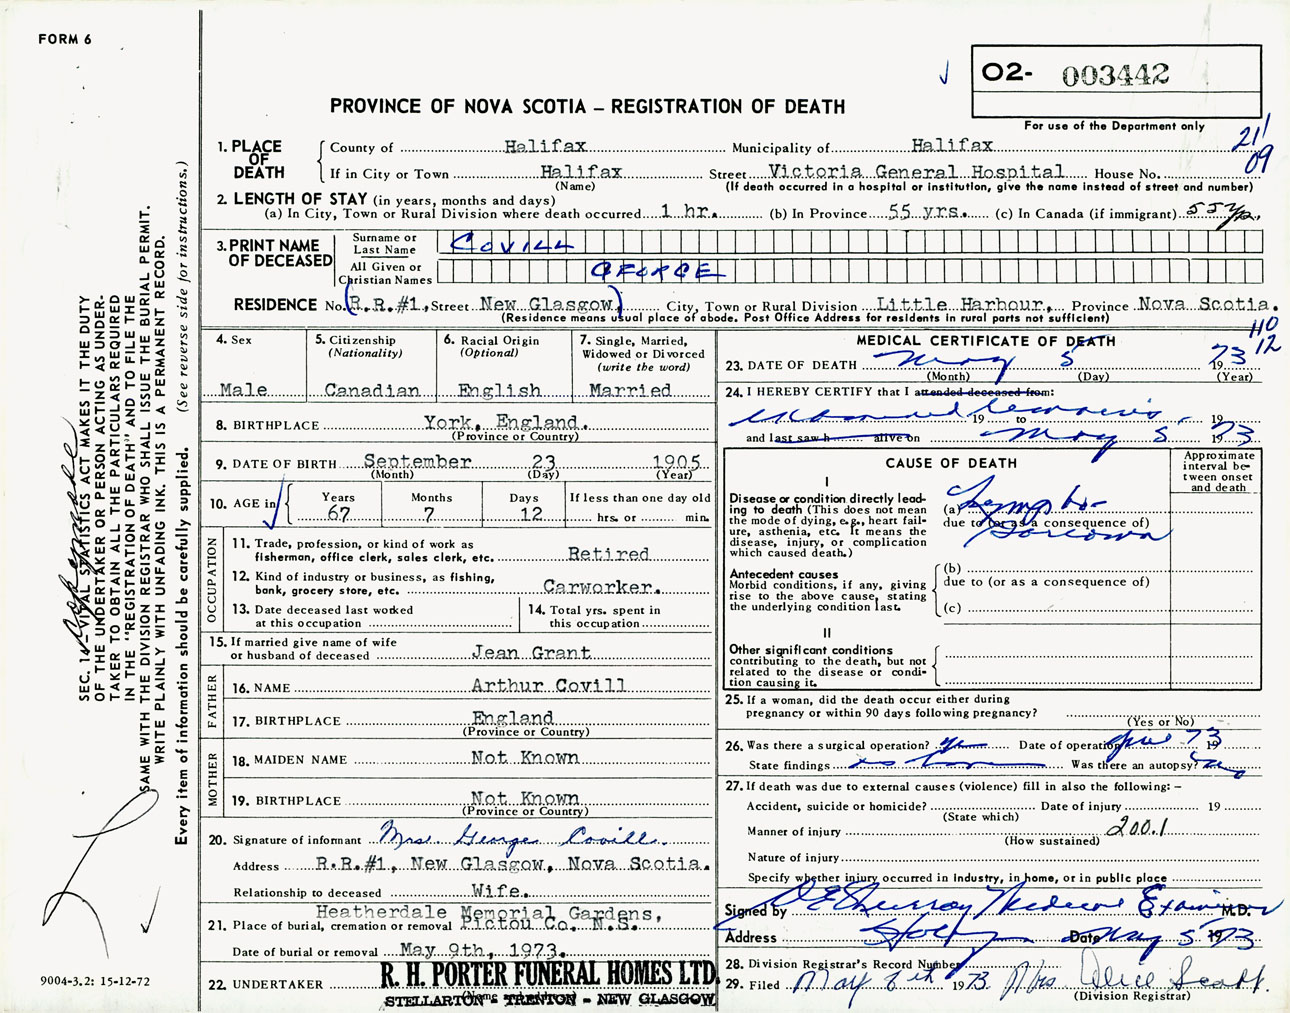 FORM 6
O2- 003442
PROVINCE OF NOVA SCOTIA – REGISTRATION OF DEATH
For use of the Department only
21'
09
1. PLACE OF DEATH
County of Halifax Municipality of Halifax
If in City or Town Halifax Street Victoria General Hospital House No.
(Name) (If death occurred in a hospital or institution, give the name instead of street and number)
2. LENGTH OF STAY (in years, months and days)
(a) In City, Town or Rural Division where death occurred 1 hr. (b) In Province 55 yrs. (c) In Canada (if immigrant) 55 yrs.
3. PRINT NAME OF DECEASED
Surname or Last Name COVILL
All Given or Christian Names GEORGE
RESIDENCE No. (R.R.#1, Street New Glasgow) City, Town or Rural Division Little Harbour, Province Nova Scotia.
(Residence means usual place of abode. Post Office Address for residents in rural parts not sufficient)
110
12
4. Sex
Male
5. Citizenship
(Nationality)
Canadian
6. Racial Origin
(Optional)
English
7. Single, Married,
Widowed or Divorced
(write the word)
Married
8. BIRTHPLACE York, England.
(Province or Country)
9. DATE OF BIRTH September 23 1905
(Month) (Day) (Year)
10. AGE in
Years Months Days If less than one day old
67 7 12 hrs. or min.
OCCUPATION
11. Trade, profession, or kind of work as
fisherman, office clerk, sales clerk, etc. Retired
12. Kind of industry or business, as fishing,
bank, grocery store, etc. Carworker.
13. Date deceased last worked
at this occupation
14. Total yrs. spent in
this occupation
15. If married give name of wife
or husband of deceased Jean Grant
FATHER
16. NAME Arthur Covill
17. BIRTHPLACE England
(Province or Country)
MOTHER
18. MAIDEN NAME Not Known
19. BIRTHPLACE Not Known
(Province or Country)
20. Signature of informant Mrs George Covill.
Address R.R.#1, New Glasgow, Nova Scotia.
Relationship to deceased Wife.
Heatherdale Memorial Gardens,
21. Place of burial, cremation or removal Pictou Co. N.S.
Date of burial or removal May 9th, 1973.
22. UNDERTAKER R. H. PORTER FUNERAL HOMES LTD.
(Name)
STELLARTON - TRENTON - NEW GLASGOW
MEDICAL CERTIFICATE OF DEATH
23. DATE OF DEATH May 5 1973
(Month) (Day) (Year)
24. I HEREBY CERTIFY that I attended deceased from:
19 to 19
and last saw h alive on May 5 1973
CAUSE OF DEATH
Approximate interval between onset and death
I
Disease or condition directly leading to death (This does not mean the mode of dying, e.g., heart failure, asthenia, etc. It means the disease, injury, or complication which caused death.)
(a) Lympho-
due to (or as a consequence of)
Sarcoma
Antecedent causes
Morbid conditions, if any, giving rise to the above cause, stating the underlying condition last.
(b)
due to (or as a consequence of)
(c)
II
Other significant conditions
contributing to the death, but not related to the disease or condition causing it.
25. If a woman, did the death occur either during
pregnancy or within 90 days following pregnancy?
(Yes or No)
26. Was there a surgical operation? Date of operation 73 19
State findings Was there an autopsy?
27. If death was due to external causes (violence) fill in also the following: –
Accident, suicide or homicide? Date of injury 19
(State which)
Manner of injury 200.1
(How sustained)
Nature of injury
Specify whether injury occurred in industry, in home, or in public place
Signed by Murray Medical Examiner M.D.
Address Date May 5 1973
28. Division Registrar's Record Number
29. Filed May 8th 1973 Mrs Alice Scott.
(Division Registrar)
SEC. 14 – VITAL STATISTICS ACT MAKES IT THE DUTY
OF THE UNDERTAKER OR PERSON ACTING AS UNDER-
TAKER TO OBTAIN ALL THE PARTICULARS REQUIRED
IN THE "REGISTRATION OF DEATH" AND TO FILE THE
SAME WITH THE DIVISION REGISTRAR WHO SHALL ISSUE THE BURIAL PERMIT.
WRITE PLAINLY WITH UNFADING INK. THIS IS A PERMANENT RECORD.
Every item of information should be carefully supplied. (See reverse side for instructions.)
9004-3.2: 15-12-72